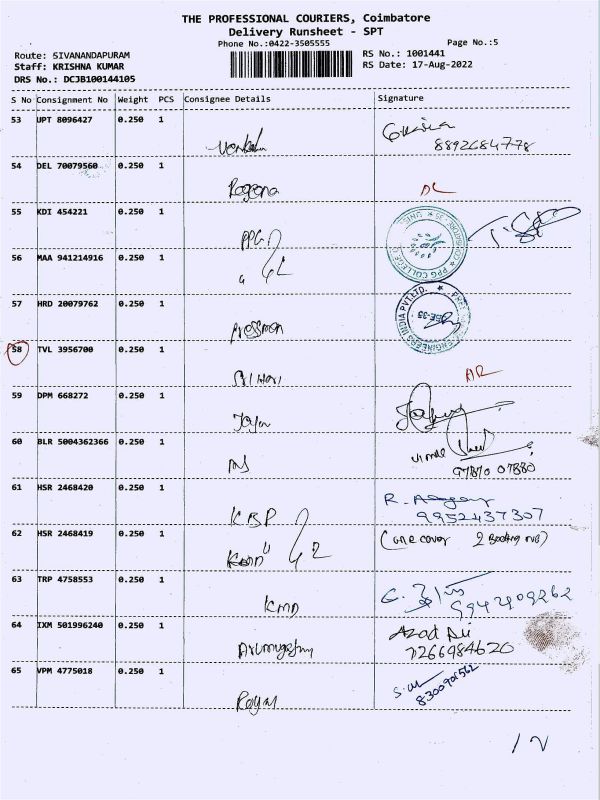 THE PROFESSIONAL COURIERS, Coimbatore
Delivery Runsheet - SPT
Phone No.:0422-3505555
Page No.:5
Route: SIVANANDAPURAM
RS No.: 1001441
Staff: KRISHNA KUMAR
RS Date: 17-Aug-2022
DRS No.: DCJB100144105
S No Consignment No Weight PCS Consignee Details Signature
53 UPT 8096427 0.250 1
8892684778
54 DEL 70079560 0.250 1
Regena
55 KDI 454221 0.250 1
PPG
PPG COLLEGE
56 MAA 941214916 0.250 1
57 HRD 20079762 0.250 1
Pressman
ENGINEERS INDIA PVT.LTD.
58 TVL 3956700 0.250 1
59 DPM 668272 0.250 1
60 BLR 5004362366 0.250 1
Vimal
97870 07880
61 HSR 2468420 0.250 1
KBP
9952437307
62 HSR 2468419 0.250 1
(one cover 2 Booking
63 TRP 4758553 0.250 1
KMD
9942909262
64 IXM 501996240 0.250 1
Azad Ali
7266984620
65 VPM 4775018 0.250 1
Royal
8300901562
12